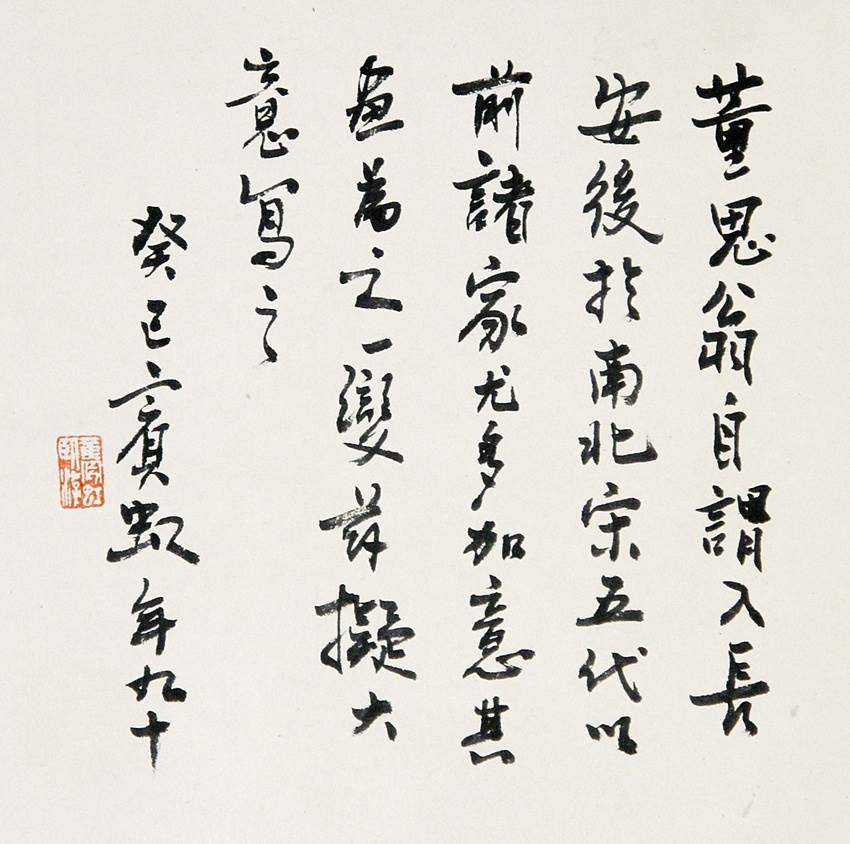 董思翁自謂入長
安後於南北宋五代以
前諸家尤多加意其
畫為之一變茲擬大
意寫之
癸巳賓虹年九十
黃賓虹